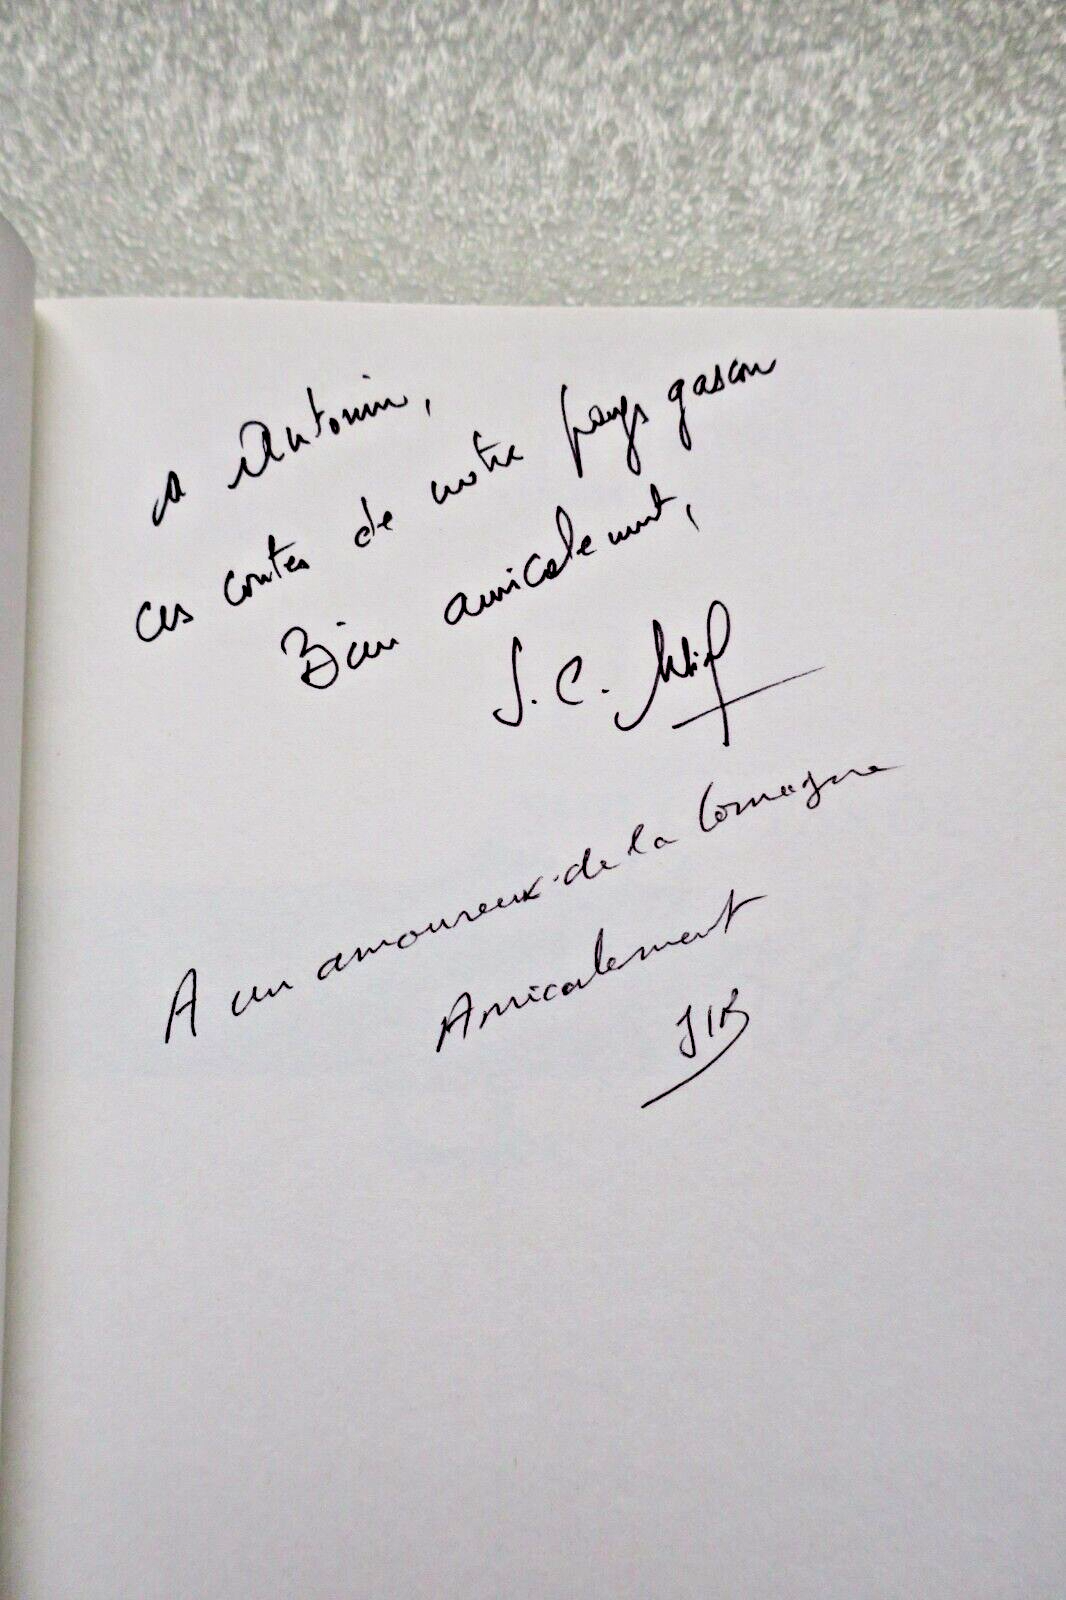 A Antonin,
ces contes de notre pays gascon
Bien amicalement,
J. C.
A un amoureux de la Lomagne
Amicalement